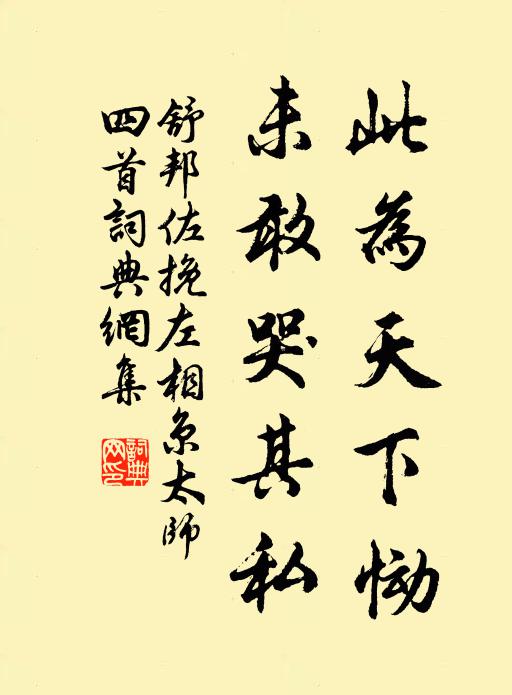 此為天下慟
未敢哭其私
舒邦佐挽左相京太師
四首詞典網集
詞典
网印